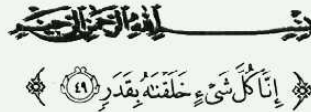 بسم الله الرحمن الرحيم
إِنَّا كُلَّ شَىْءٍ خَلَقْنَٰهُ بِقَدَرٍ ٤٩